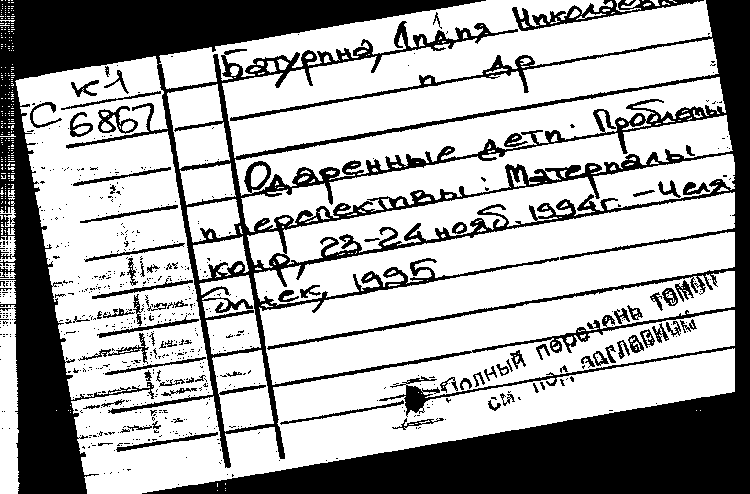 К1
С 6867
Батурина, Лидия Николаевна
и др
Одаренные дети: Проблемы
и перспективы: Материалы
конф., 23-24 нояб. 1994г. – Челя
бинск, 1995
Полный перечень томов
см. под заглавием